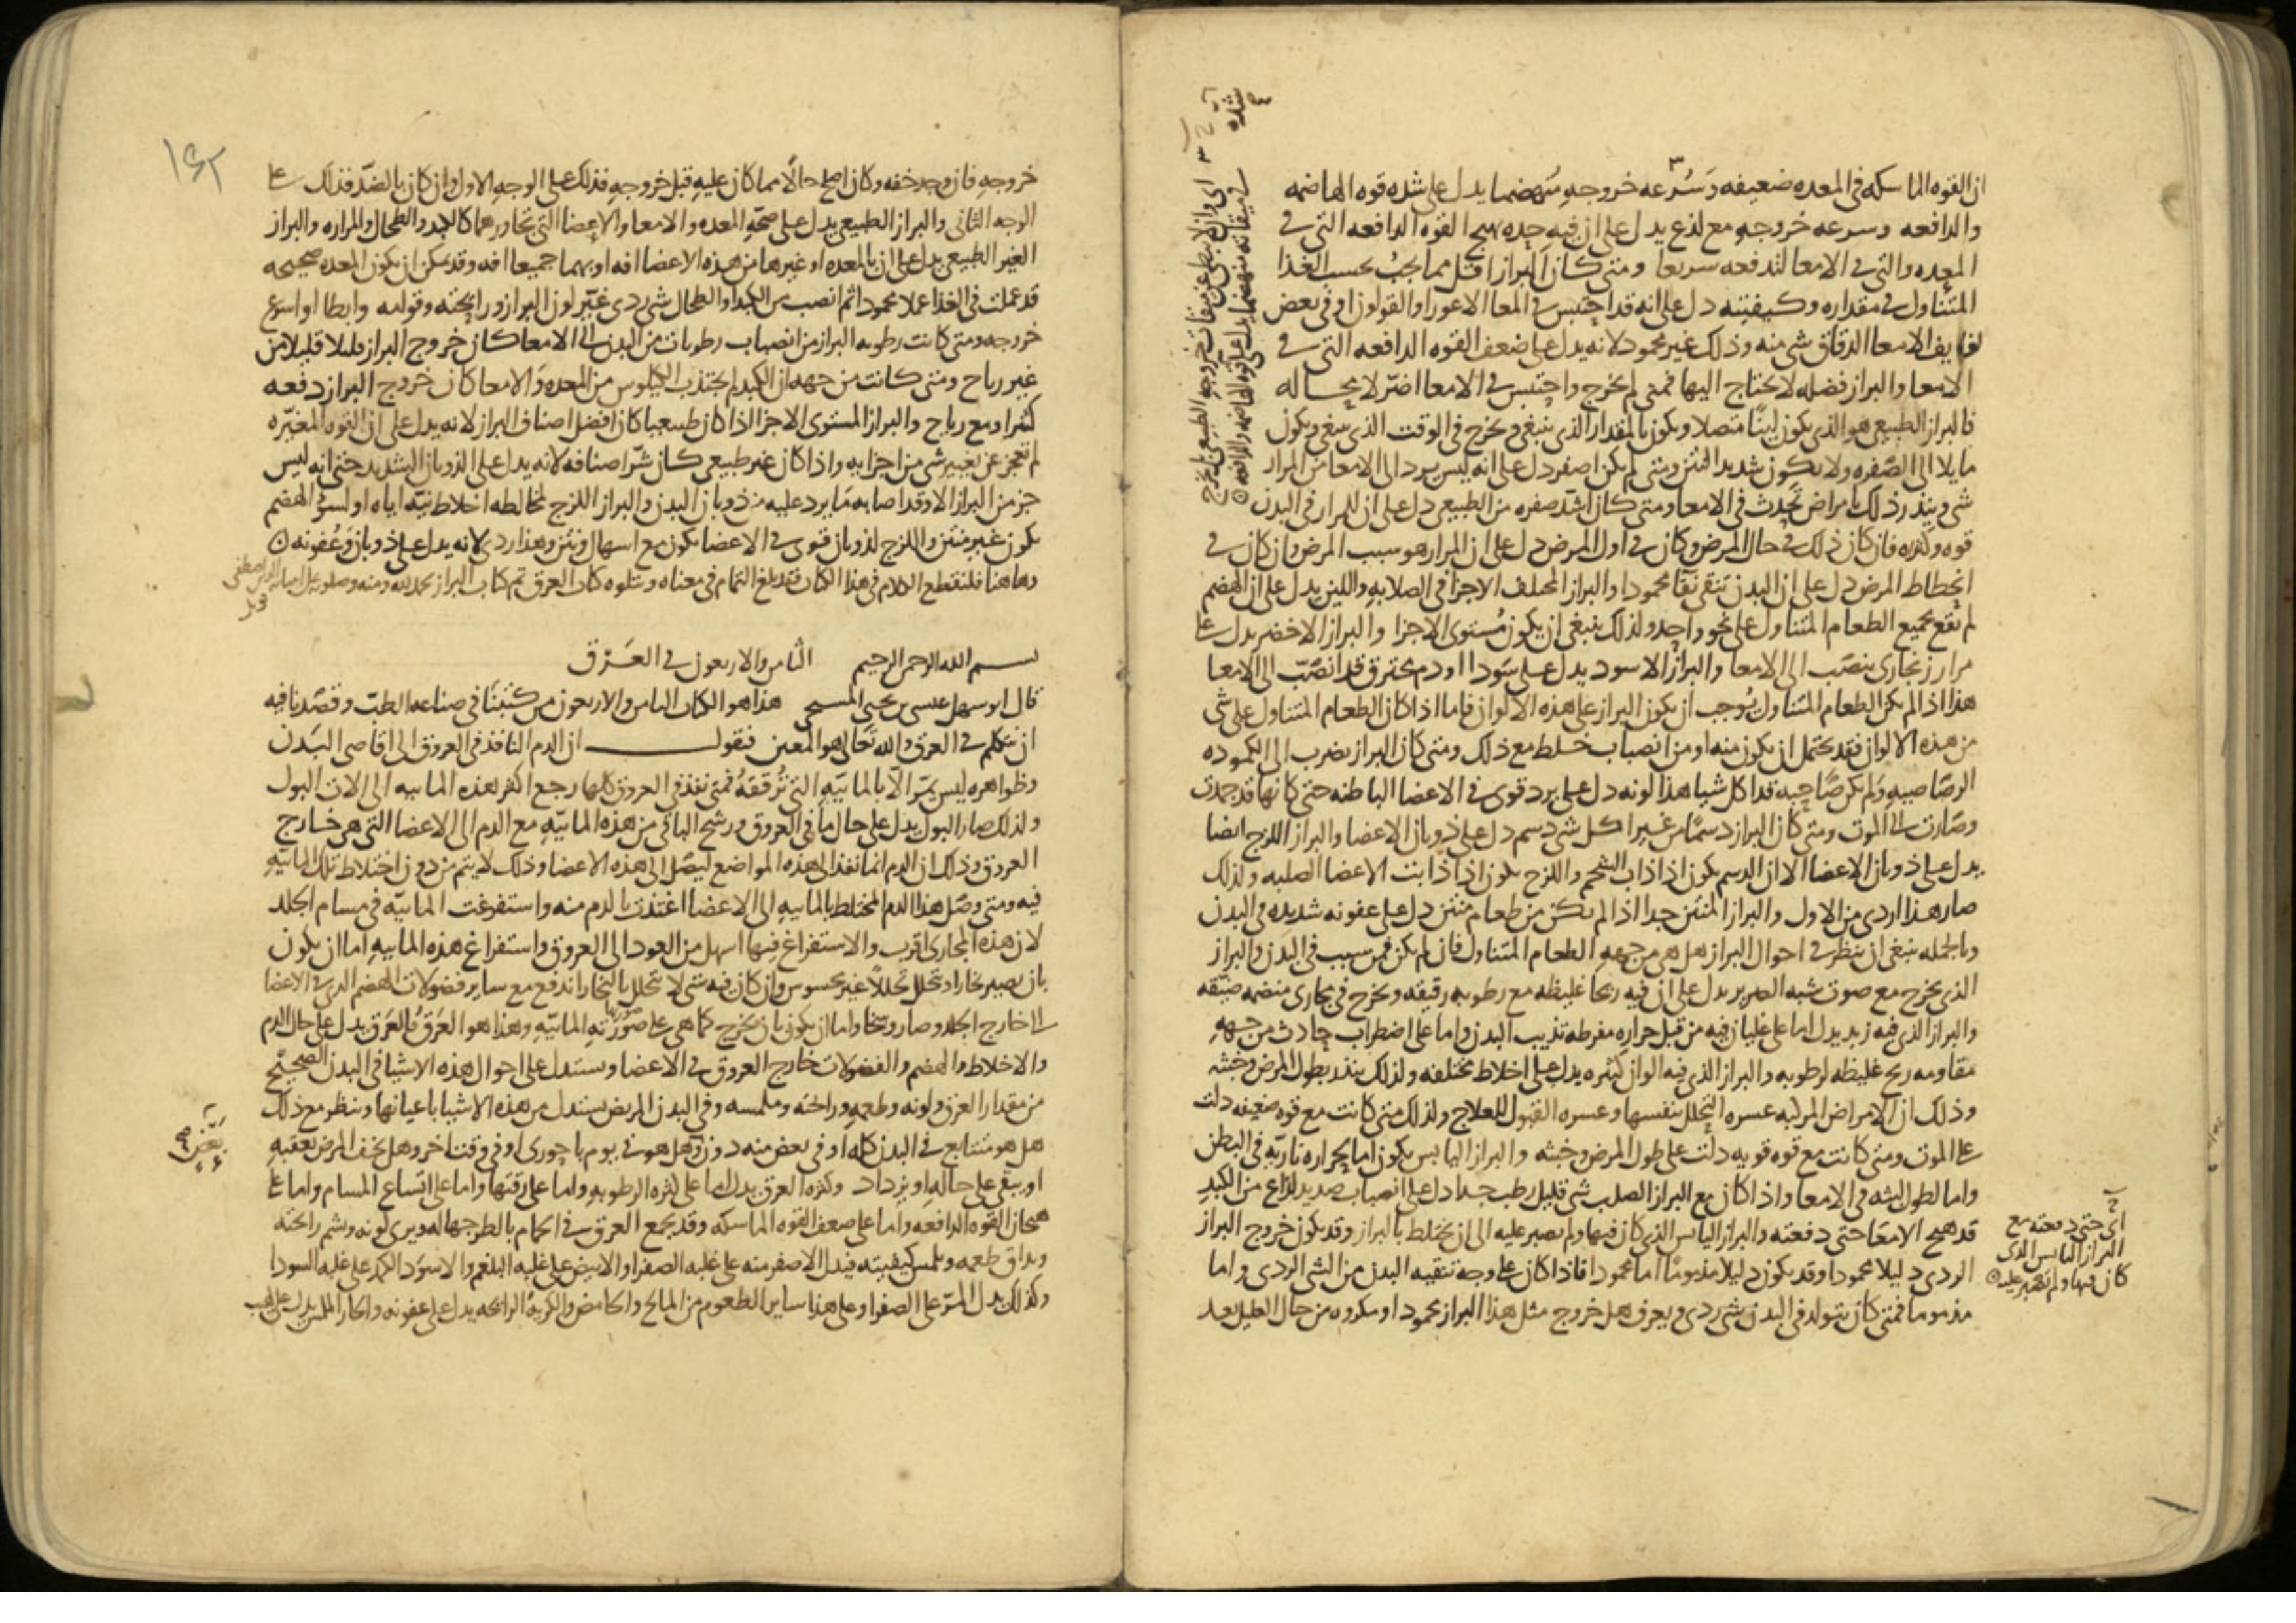 ان القوه الماسكه فى المعده ضعيفه وسرعه خروجه منهضما يدل على شده قوه الهاضمه
والدافعه وسرعه خروجه مع لذع يدل على ان فيه حده تهيج القوه الدافعه التى فى
المعده والتى فى الامعا لتدفعه سريعا ومتى كان البراز اقل مما يجب بحسب الغذا
المتناول فى مقداره وكيفيته دل على انه قد احتبس فى المعا الاعور او القولون او فى بعض
لفايف الامعا الدقاق شى منه وذلك غير محمود لانه يدل على ضعف القوه الدافعه التى فى
الامعا والبراز فضله لا يحتاج اليها فمتى لم يخرج واحتبس فى الامعا اضر لا محاله
فالبراز الطبيعى هو الذى يكون لينا متصلا ويكون بالمقدار الذى ينبغى ويخرج فى الوقت الذى ينبغى ويكون
مايلا الى الصفره ولا يكون شديد النتن ومتى لم يكن اصفر دل على انه ليس يرد الى الامعا من المرار
شى وينذر ذلك بامراض تحدث فى الامعا ومتى كان اشد صفره من الطبيعى دل على ان للمرار فى البدن
قوه وكثره فان كان ذلك فى حال المرض وكان فى اول المرض دل على ان المرار هو سبب المرض وان كان فى
انحطاط المرض دل على ان البدن تنقى نقا محمودا والبراز المختلف الاجزا فى الصلابه واللين يدل على ان الهضم
لم يقع بجميع الطعام المتناول على نحو واحد ولذلك ينبغى ان يكون مستوى الاجزا والبراز الاخضر يدل على
مرار زنجارى ينصب الى الامعا والبراز الاسود يدل على سودا او دم محترق قد انصب الى الامعا
هذا اذا لم يكن الطعام المتناول يوجب ان يكون البراز على هذه الالوان فاما اذا كان الطعام المتناول على شى
من هذه الالوان فقد يحتمل ان يكون منه او من انصباب خلط مع ذلك ومتى كان البراز يضرب الى الكموده
الرصاصيه ولم يكن صاحبه قد اكل شيا هذا لونه دل على برد قوى فى الاعضا الباطنه حتى كانها قد جمدت
وصارت الى الموت ومتى كان البراز دسما من غير اكل شى دسم دل على ذوبان الاعضا والبراز اللزج ايضا
يدل على ذوبان الاعضا الا ان الدسم يكون اذا ذاب الشحم واللزج يكون اذا ذابت الاعضا الصلبه ولذلك
صار هذا اردى من الاول والبراز المنتن جدا اذا لم يكن من طعام منتن دل على عفونه شديده فى البدن
وبالجمله ينبغى ان ينظر فى احوال البراز هل هى من جهه الطعام المتناول فان لم يكن فمن سبب فى البدن والبراز
الذى يخرج مع صوت شبه الصرير يدل على ان فيه ريحا غليظه مع رطوبه رقيقه ويخرج فى مجارى منضمه ضيقه
والبراز الذى فيه زبد يدل اما على غليان فيه من قبل حراره مفرطه تذيب البدن واما على اضطراب حادث من جهه
مقاومه ريح غليظه لرطوبه والبراز الذى فيه الوان كثيره يدل على اخلاط مختلفه ولذلك ينذر بطول المرض وخبثه
وذلك ان الامراض المركبه عسره التحلل بنفسها وعسره القبول للعلاج ولذلك متى كانت مع قوه ضعيفه دلت
على الموت ومتى كانت مع قوه قويه دلت على طول المرض وخبثه والبراز اليابس يكون اما لحراره ناريه فى البطن
واما لطول لبثه فى الامعا واذا كان مع البراز الصلب شى قليل رطب جدا دل على انصباب صديد لذاع من الكبد
قد هيج الامعا حتى دفعته والبراز اليابس الذى كان فيها ولم يصبر عليه الى ان يختلط بالبراز وقد يكون خروج البراز
الردى دليلا محمودا وقد يكون دليلا مذموما اما محمودا فاذا كان على وجه تنقيه البدن من الشى الردى واما
مذموما فمتى كان يتولد فى البدن شى ردى ويعرف هل خروج مثل هذا البراز محمود او مكروه من حال العليل بعد
شده
اى حتى دفعته مع
البراز اليابس الذى
كان فيها ولم يصبر عليه
١٤٢
خروجه فان وجد خفه وكان اصلح حالا مما كان عليه قبل خروجه فذلك على الوجه الاول وان كان بالضد فذلك على
الوجه الثانى والبراز الطبيعى يدل على صحه المعده والامعا والاعضا التى تجاورهما كالكبد والطحال والمراره والبراز
الغير الطبيعى يدل على ان بالمعده او غيرها من هذه الاعضا افه او بهما جميعا افه وقد يمكن ان يكون المعده صحيحه
قد عملت فى الغذا عملا محمودا ثم انصب من الكبد او الطحال شى ردى غير لون البراز ورايحته وقوامه وابطا او اسرع
خروجه ومتى كانت رطوبه البراز من انصباب رطوبات من البدن الى الامعا كان خروج البراز قليلا قليلا من
غير رياح ومتى كانت من جهه ان الكبد لم يجتذب الكيلوس من المعده والامعا كان خروج البراز دفعه
كثيرا ومع رياح والبراز المستوى الاجزا اذا كان طبيعيا كان افضل اصناف البراز لانه يدل على ان القوه المغيره
لم تعجز عن تغيير شى من اجزايه واذا كان غير طبيعى كان شر اصنافه لانه يدل على الذوبان الشديد حتى انه ليس
جز من البراز الا وقد اصابه ما يرد عليه من ذوبان البدن والبراز اللزج لمخالطه اخلاط نيه اياه او لسو الهضم
يكون غير منتن واللزج لذوبان قوى فى الاعضا يكون مع اسهال ونتن وهذا ردى لانه يدل على ذوبان وعفونه
وهاهنا فلنقطع الكلام فى هذا الكتاب فقد بلغ التمام فى معناه ويتلوه كتاب العرق تم كتاب البراز بحمد الله ومنه
قوبل
بسم الله الرحمن الرحيم الثامن والاربعون فى العرق
قال ابو سهل عيسى بن يحيى المسيحى هذا هو الكتاب الثامن والاربعون من كتبنا فى صناعه الطب وقصدنا فيه
ان نتكلم فى العرق والله تعالى هو المعين فنقول ان الدم النافذ فى العروق الى اقاصى البدن
وظواهره ليس يمر الا بالماييه التى ترققه فمتى نفذ فى العروق كلها رجع اكثر هذه الماييه الى الات البول
ولذلك صار البول يدل على حال ما فى العروق ورشح الباقى من هذه الماييه مع الدم الى الاعضا التى هى خارج
العروق وذلك ان الدم انما نفذ الى هذه المواضع ليصل الى هذه الاعضا وذلك لا يتم من دون اختلاط تلك الماييه
فيه ومتى وصل هذا الدم المختلط بالماييه الى الاعضا اغتذت بالدم منه واستفرغت الماييه فى مسام الجلد
لان هذه المجارى اقرب والاستفراغ فيها اسهل من العود الى العروق واستفراغ هذه الماييه اما ان يكون
بان يصير بخارا وتحلل تحللا غير محسوس وان كان فيه شى لا يتحلل بالبخار اندفع مع ساير فضولات الهضم الذى فى الاعضا
الى خارج الجلد وصار وسخا واما ان يكون بان يخرج كما هى على صورته الماييه وهذا هو العرق فالعرق يدل على حال الدم
والاخلاط والهضم والفضولات خارج العروق فى الاعضا ويستدل على احوال هذه الاشيا فى البدن الصحيح
من مقدار العرق ولونه وطعمه ورائحته وملمسه وفى البدن المريض يستدل من هذه الاشيا باعيانها وينظر مع ذلك
هل هو متتابع فى البدن كله او فى بعض منه دون وهل هو فى يوم باحورى او فى وقت اخر وهل يخف المرض بعقبه
او يبقى على حاله او يزداد وكثره العرق يدل اما على كثره الرطوبه واما على رقتها واما على اتساع المسام واما على
هيجان القوه الدافعه واما على ضعف القوه الماسكه وقد يجمع العرق فى الحمام بالطرجهاله ويرى لونه ويشم رائحته
ويذاق طعمه ويلمس كيفيته فيدل الاصفر منه على غلبه الصفرا والابيض على غلبه البلغم والاسود الكمد على غلبه السودا
وكذلك يدل المر على الصفرا وعلى هذا ساير الطعوم من المالح والحامض والكريه الرائحه يدل على عفونه والحار الملمس يدل على